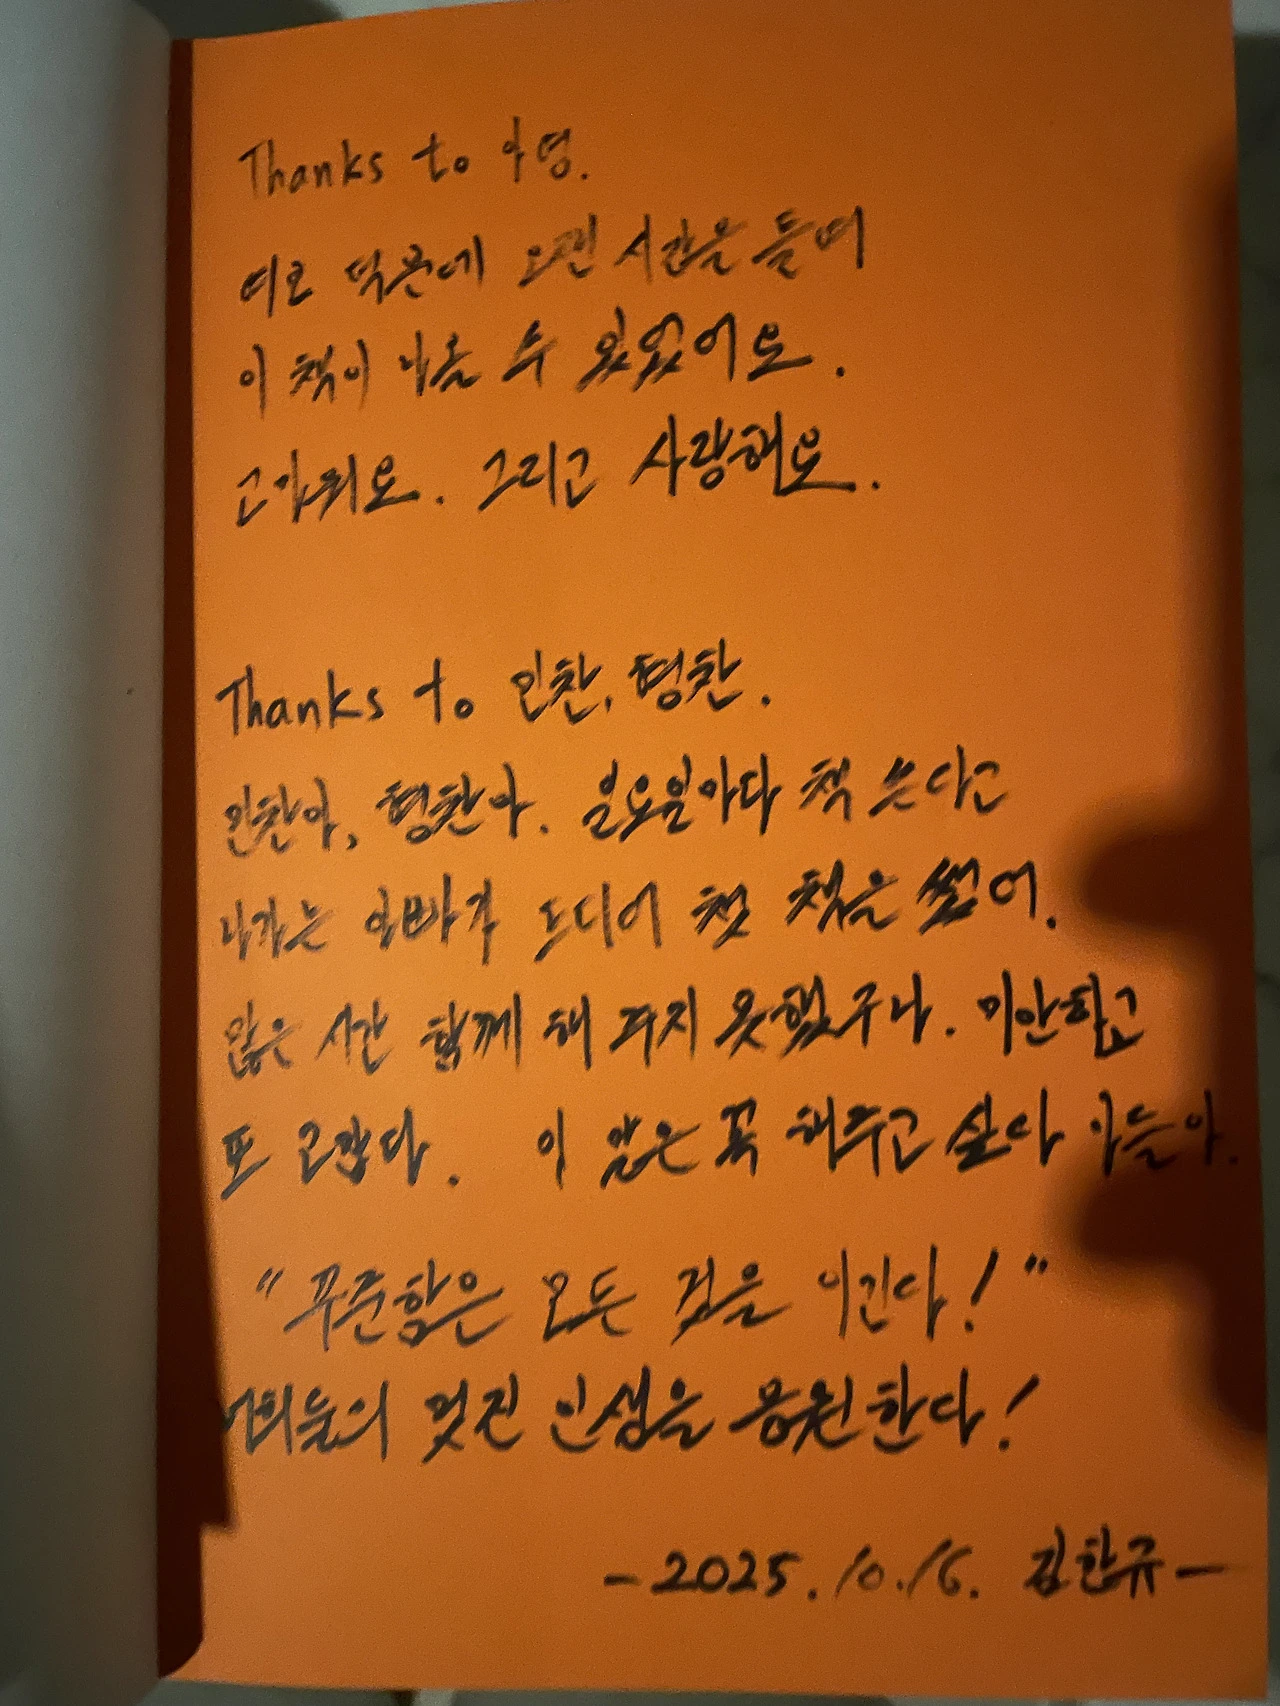 Thanks to 아영.
여보 덕분에 오랜 시간을 들여
이 책이 나올 수 있었어요.
고마워요. 그리고 사랑해요.
Thanks to 인찬, 형찬.
인찬아, 형찬아. 일요일마다 책 쓴다고
나가는 아빠가 드디어 첫 책을 썼어.
많은 시간 함께 해 주지 못했구나. 미안하고
또 고맙다. 이 말은 꼭 해주고 싶다 아들아.
"꾸준함은 모든 것을 이긴다!"
너희들의 멋진 인생을 응원한다!
-2025.10.16. 김한규-